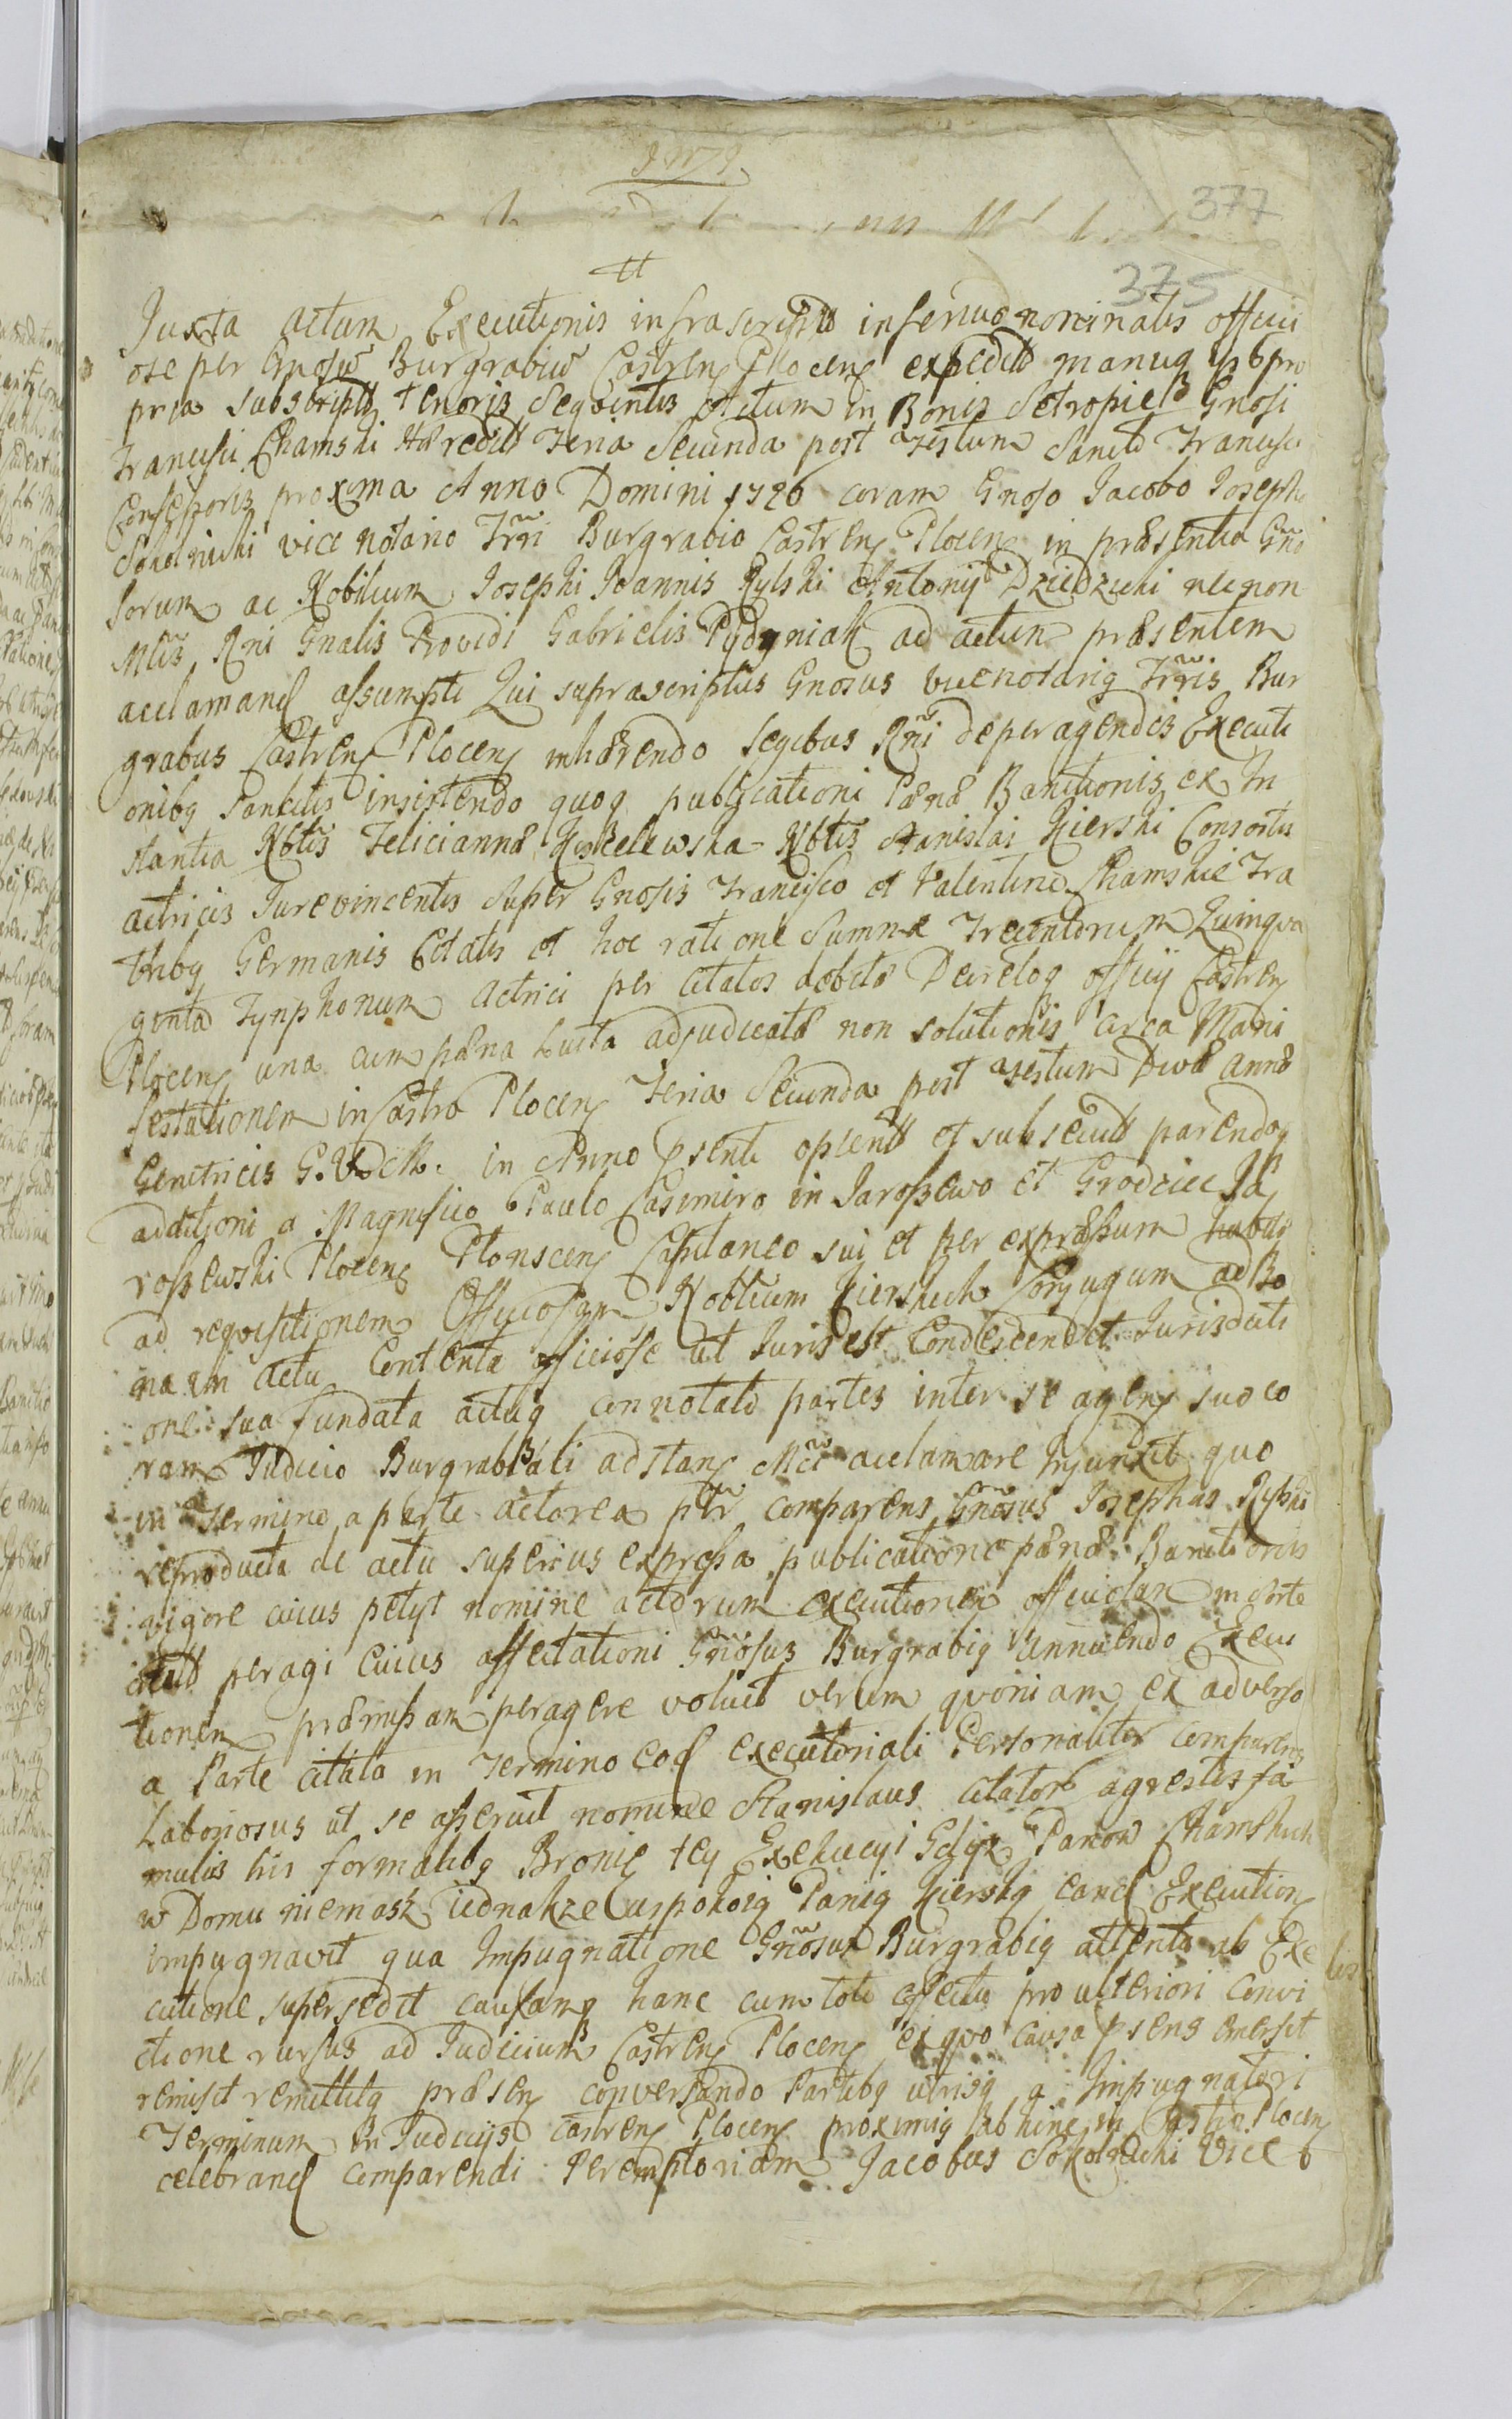 377
375
Juxta actum Executionis infrascriptū inferius nominatis offici
ose per Gnosū Burgrabiū Castren Plocen expeditū manuq ipsб pro
pria subscriptū tenoris Seqventis Actum in Bonis Setropie Gnosi
Francisci Chamski Hæredit Feria Secunda post Festum Sancti Francisci
Confessoris proxima Anno Domini 1726 coram Gnoso Jacobo Josepho
Sokolnicki vice notario Trri Burgrabio Castren Plocen in præsentia Gno
sorum ac Nobilium Josephi Joannis Rylski Antonij Dziedzicki nec non
Mtis Rni Gnalis Providi Gabrielis Pydyniak ad actum præsentem
acclamand assumpti Qui suprascriptus Gnosus vicenotariq Trris Bur
grabus Castren Plocen inhærendo legibus Rni de peragendis Executi
onibq Sancitis insistendo quoq publicationi Pænæ Bannitionis ex In
stantia Nbtis Felicianna Nbtis Stanislai Kierski Consortis
actricis Jurevincentis super Gnosis Francisco et Valentino Chamskie Fra
tribq Germanis Citatis et hoc ratione Summæ Trecentorum Quinqva
ginta Tynphonum actrici per citatos debitæ Decretoq officij Castren
Plocen una cum pæna Lucta adjudicatæ non solutionis circa Mani
festationem in Castro Plocen Feria Secunda post Festum Divæ Annæ
Genetricis G. V. D. M. in Anno psenti et subsecutū parendoq
additioni a Magnifico Paulo Casimiro in Jaroszewo et Grodziec Ja
roszewski Plocen Plonscen Capitaneo sui et per expræssum habitæ
ad reqvisitionem Officiosam Nobilium Kierskich Conjugum ad Bo
na in actu Contenta officiose ut Juris est Condescendit Jurisdicti
one sua fundata actuq connotato partes inter se agen suo co
ram Judicio Burgrabiali adstan Mtte acclamare Injunxit quo
in Termino a parte actorea ptr comparens Gnosus Josephus Rylski
reproducta de actu superius expressa publicatione pænæ Bannitionis
vigore cuius petijt nomine actorum executionem officiosam
peragi Cuius affectationi Gnosus Burgrabiq Annuendo Execu
tionem præmissam peragere voluit verum qvoniam ex adverso
a Parte citata in Termino eod executoriali Personaliter comparens
Laboriosus ut se asseruit nomine Stanislaus citator agrestis fa
mulus his formalibq Bronię tey Exekucyi Gdyż Panow Chamskich
w Domu niemasz iednakze uspokoią Panią Kierską eand Execution
impugnavit qua Impugnatione Gnosus Burgrabiq attenta ab Exe
cutione supersedit causamq hanc cum toto effectu pro ulteriori convi
ctione rursus ad Judicium Castren Plocen ex quo causa psens emersit
remisit remittitq præsen conversando Partibq utrisq a Impugnatori
Terminum in Judicijs Castren Plocen proximiq ab hinc in Castro Plocen
celebrand comparendi Peremptoriam Jacobus Sokolnicki Vice